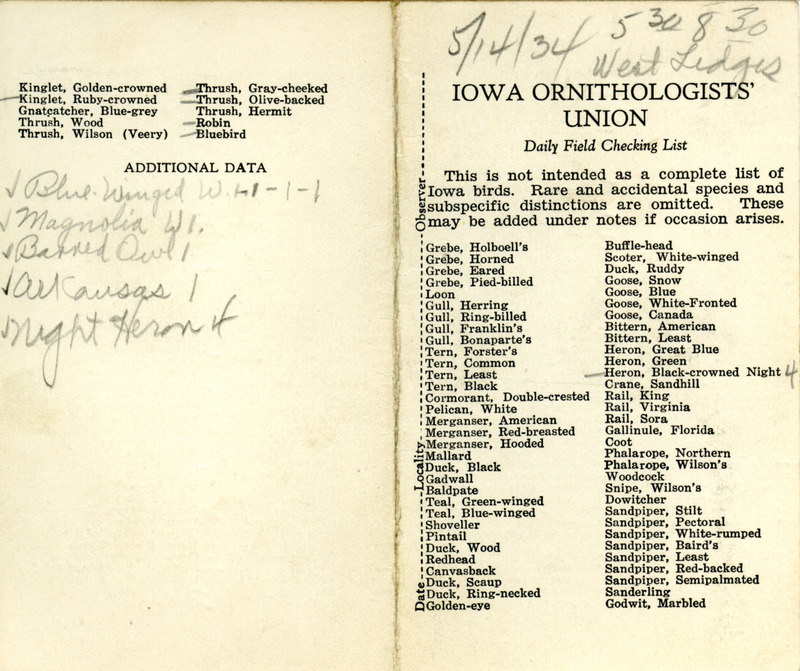 Kinglet, Golden-crowned
Kinglet, Ruby-crowned
Gnatcatcher, Blue-grey
Thrush, Wood
Thrush, Wilson (Veery)
Thrush, Gray-cheeked
Thrush, Olive-backed
Thrush, Hermit
Robin
Bluebird
ADDITIONAL DATA
√ Blue-Winged W. 1-1-1-1
√ Magnolia W1.
√ Barred Owl 1
√ Arkansas 1
√ Night Heron 4
5/14/34 5 30 8 30
West Ledges
IOWA ORNITHOLOGISTS'
UNION
Daily Field Checking List
This is not intended as a complete list of
Iowa birds. Rare and accidental species and
subspecific distinctions are omitted. These
may be added under notes if occasion arises.
Date Locality Observer
Grebe, Holboell's
Grebe, Horned
Grebe, Eared
Grebe, Pied-billed
Loon
Gull, Herring
Gull, Ring-billed
Gull, Franklin's
Gull, Bonaparte's
Tern, Forster's
Tern, Common
Tern, Least
Tern, Black
Cormorant, Double-crested
Pelican, White
Merganser, American
Merganser, Red-breasted
Merganser, Hooded
Mallard
Duck, Black
Gadwall
Baldpate
Teal, Green-winged
Teal, Blue-winged
Shoveller
Pintail
Duck, Wood
Redhead
Canvasback
Duck, Scaup
Duck, Ring-necked
Golden-eye
Buffle-head
Scoter, White-winged
Duck, Ruddy
Goose, Snow
Goose, Blue
Goose, White-Fronted
Goose, Canada
Bittern, American
Bittern, Least
Heron, Great Blue
Heron, Green
Heron, Black-crowned Night 4
Crane, Sandhill
Rail, King
Rail, Virginia
Rail, Sora
Gallinule, Florida
Coot
Phalarope, Northern
Phalarope, Wilson's
Woodcock
Snipe, Wilson's
Dowitcher
Sandpiper, Stilt
Sandpiper, Pectoral
Sandpiper, White-rumped
Sandpiper, Baird's
Sandpiper, Least
Sandpiper, Red-backed
Sandpiper, Semipalmated
Sanderling
Godwit, Marbled